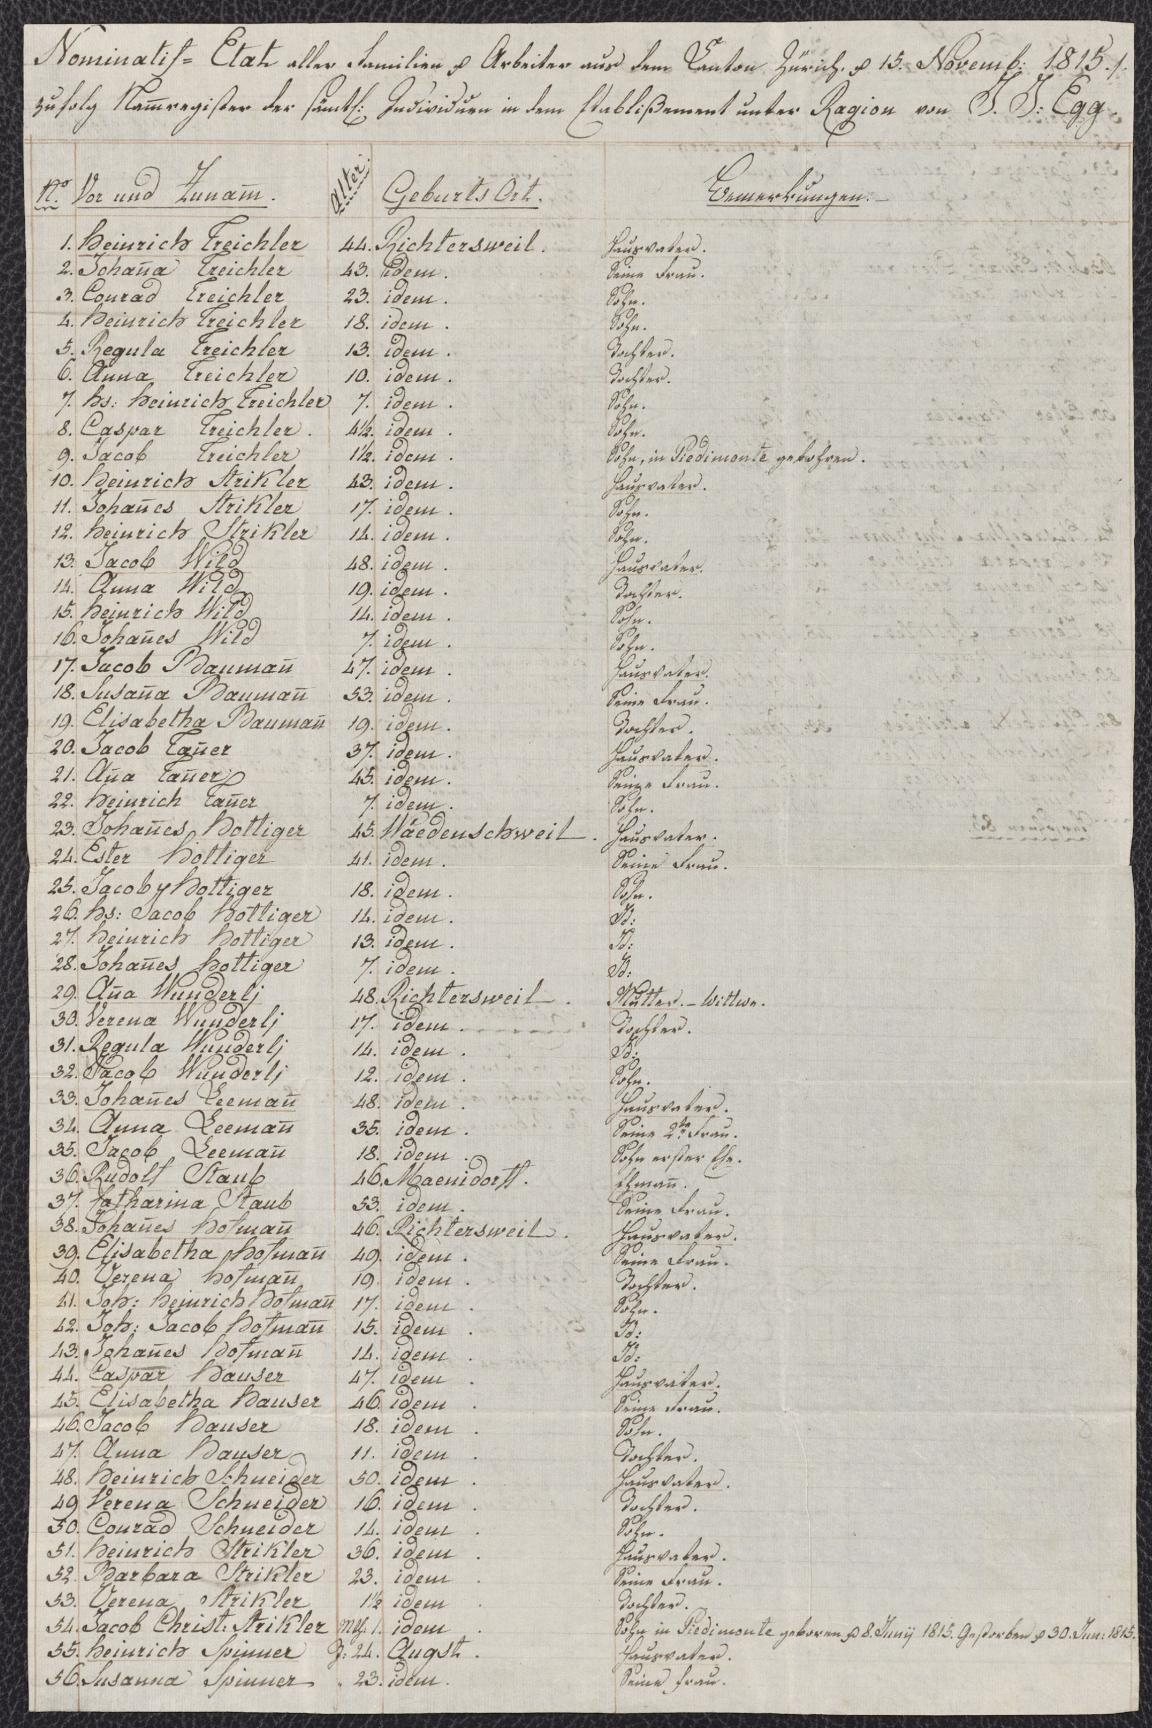 Nominatif= Etat aller Familien & Arbeiter aus dem Canton Zürich. p 15. Novemb: 1815./.
zufolg Namregister der sämtl: Individuen in dem Etablißement unter Ragion von J. J: Egg
No. Vor und Zunam̄. Alter. Geburts Ort. Bemerkungen.
1. Heinrich Treichler 44. Richtersweil. Hausvater.
2. Johan̄a Treichler 43. idem. Seine Frau.
3. Conrad Treichler 23. idem. Sohn.
4. Heinrich Treichler 18. idem. Sohn.
5. Regula Treichler 13. idem. Tochter.
6. Anna Treichler 10. idem. Tochter.
7. Hs: Heinrich Treichler 7. idem. Sohn.
8. Caspar Treichler. 4½. idem. Sohn.
9. Jacob Treichler 1½. idem. Sohn, in Piedimonte gebohren.
10. Heinrich Strikler 43. idem. Hausvater.
11. Johan̄es Strikler 17. idem. Sohn.
12. Heinrich Strikler 14. idem. Sohn.
13. Jacob Wild 48. idem. Hausvater.
14. Anna Wild 19. idem. Tochter.
15. Heinrich Wild 14. idem. Sohn.
16. Johan̄es Wild 7. idem. Sohn.
17. Jacob Bauman̄ 47. idem. Hausvater.
18. Susan̄a Bauman̄ 53. idem. Seine Frau.
19. Elisabetha Bauman̄ 19. idem. Tochter.
20. Jacob Tan̄er 37. idem. Hausvater.
21. An̄a Tan̄er 45. idem. Seine Frau.
22. Heinrich Tan̄er 7. idem. Sohn.
23. Johan̄es Hottiger 45. Wäedenschweil. Hausvater.
24. Ester Hottiger 41. idem. Seine Frau.
25. Jacob Hottiger 18. idem. Sohn.
26. Hs: Jacob Hottiger 14. idem. Id:
27. Heinrich Hottiger 13. idem. Id:
28. Johan̄es Hottiger 7. idem. Id:
29. An̄a Wunderlj 48. Richtersweil. Mutter. – Wittwe.
30. Verena Wunderlj 17. idem. Tochter.
31. Regula Wunderlj 14. idem. Id:
32. Jacob Wunderlj 12. idem. Sohn.
33. Johan̄es Leeman̄ 48. idem. Hausvater.
34. Anna Leeman̄ 35. idem. Seine 2te Frau.
35. Jacob Leeman̄ 18. idem. Sohn erster Ehe.
36. Rudolf Staub 46. Maenidorff. Ehman̄.
37. Catharina Staub 53. idem. Seine Frau.
38. Johan̄es Hofman̄ 46. Richtersweil. Hausvater.
39. Elisabetha Hofman̄ 49. idem. Seine Frau.
40. Verena Hofman̄ 19. idem. Tochter.
41. Joh: Heinrich Hofman̄ 17. idem. Sohn.
42. Joh: Jacob Hofman̄ 15. idem. Id:
43. Johan̄es Hofman̄ 14. idem. Id:
44. Caspar Hauser 47. idem. Hausvater.
45. Elisabetha Hauser 46. idem. Seine Frau.
46. Jacob Hauser 18. idem. Sohn.
47. Anna Hauser 11. idem. Tochter.
48. Heinrich Schneider 50. idem. Hausvater.
49 Verena Schneider 16. idem. Tochter.
50. Conrad Schneider 14. idem. Sohn.
51. Heinrich Strikler 36. idem. Hausvater.
52. Barbara Strikler 23. idem. Seine Frau.
53. Verena Strikler 1½ idem. Tochter.
54. Jacob Christ: Strikler 1. idem. Sohn in Piedimonte geboren p 8. Junij 1815. Gestorben p 30. Jun: 1815.
55. Heinrich Spinner J: 24. Augst. Hausvater.
56. Susanna Spinner 23. idem. Seine Frau.